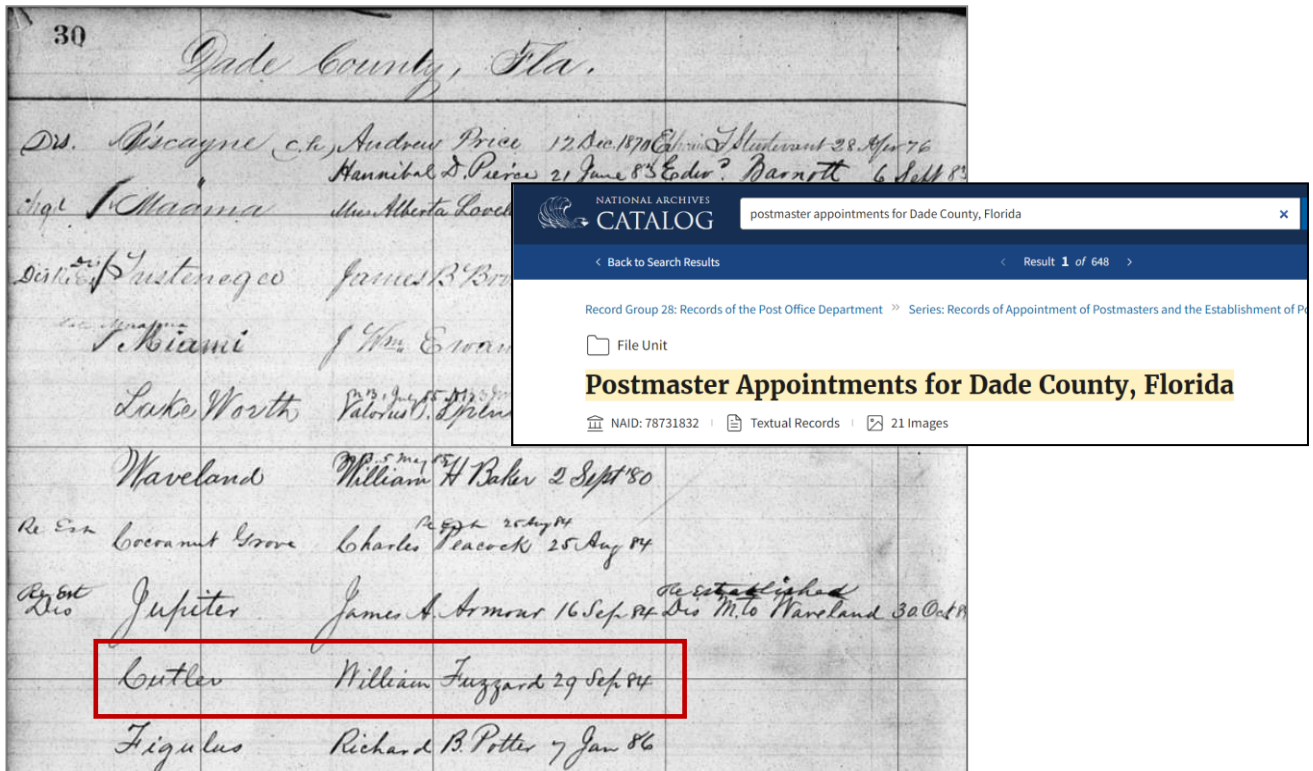 30
Dade County, Fla.
Dis. Biscayne (c.h.) Andrew Price 12 Dec. 1870 28 Apr 76
Hannibal D. Pierce 21 June 83 Edw.d Barnott 6 Sept 83
Maama Mrs Alberta
James B.
Miami Wm.
Lake Worth Valorus
Waveland William H Baker 2 Sept '80
Re Est 25 Aug 84
Cocoanut Grove Charles Peacock 25 Aug 84
Re Est Re established
Dis Jupiter James A. Armour 16 Sep 84 Dis M. to Waveland 30 Oct
Cutler William Fuzzard 29 Sep 84
Figulus Richard B. Potter 7 Jan 86
NATIONAL ARCHIVES
CATALOG
postmaster appointments for Dade County, Florida ×
< Back to Search Results < Result 1 of 648 >
Record Group 28: Records of the Post Office Department » Series: Records of Appointment of Postmasters and the Establishment of
File Unit
Postmaster Appointments for Dade County, Florida
NAID: 78731832 Textual Records 21 Images